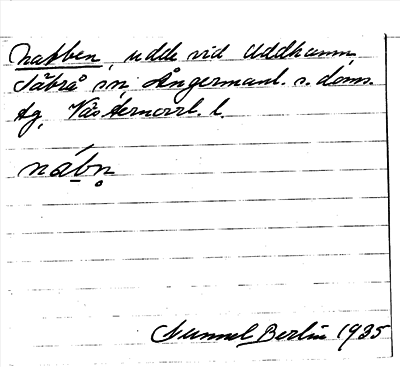 nabben, udde vid Uddhamn,
Säbrå sn, Ångermanl. s. doms.
tg, Västernorrl. l.
nábn̥
Sunnel Berlin 1935